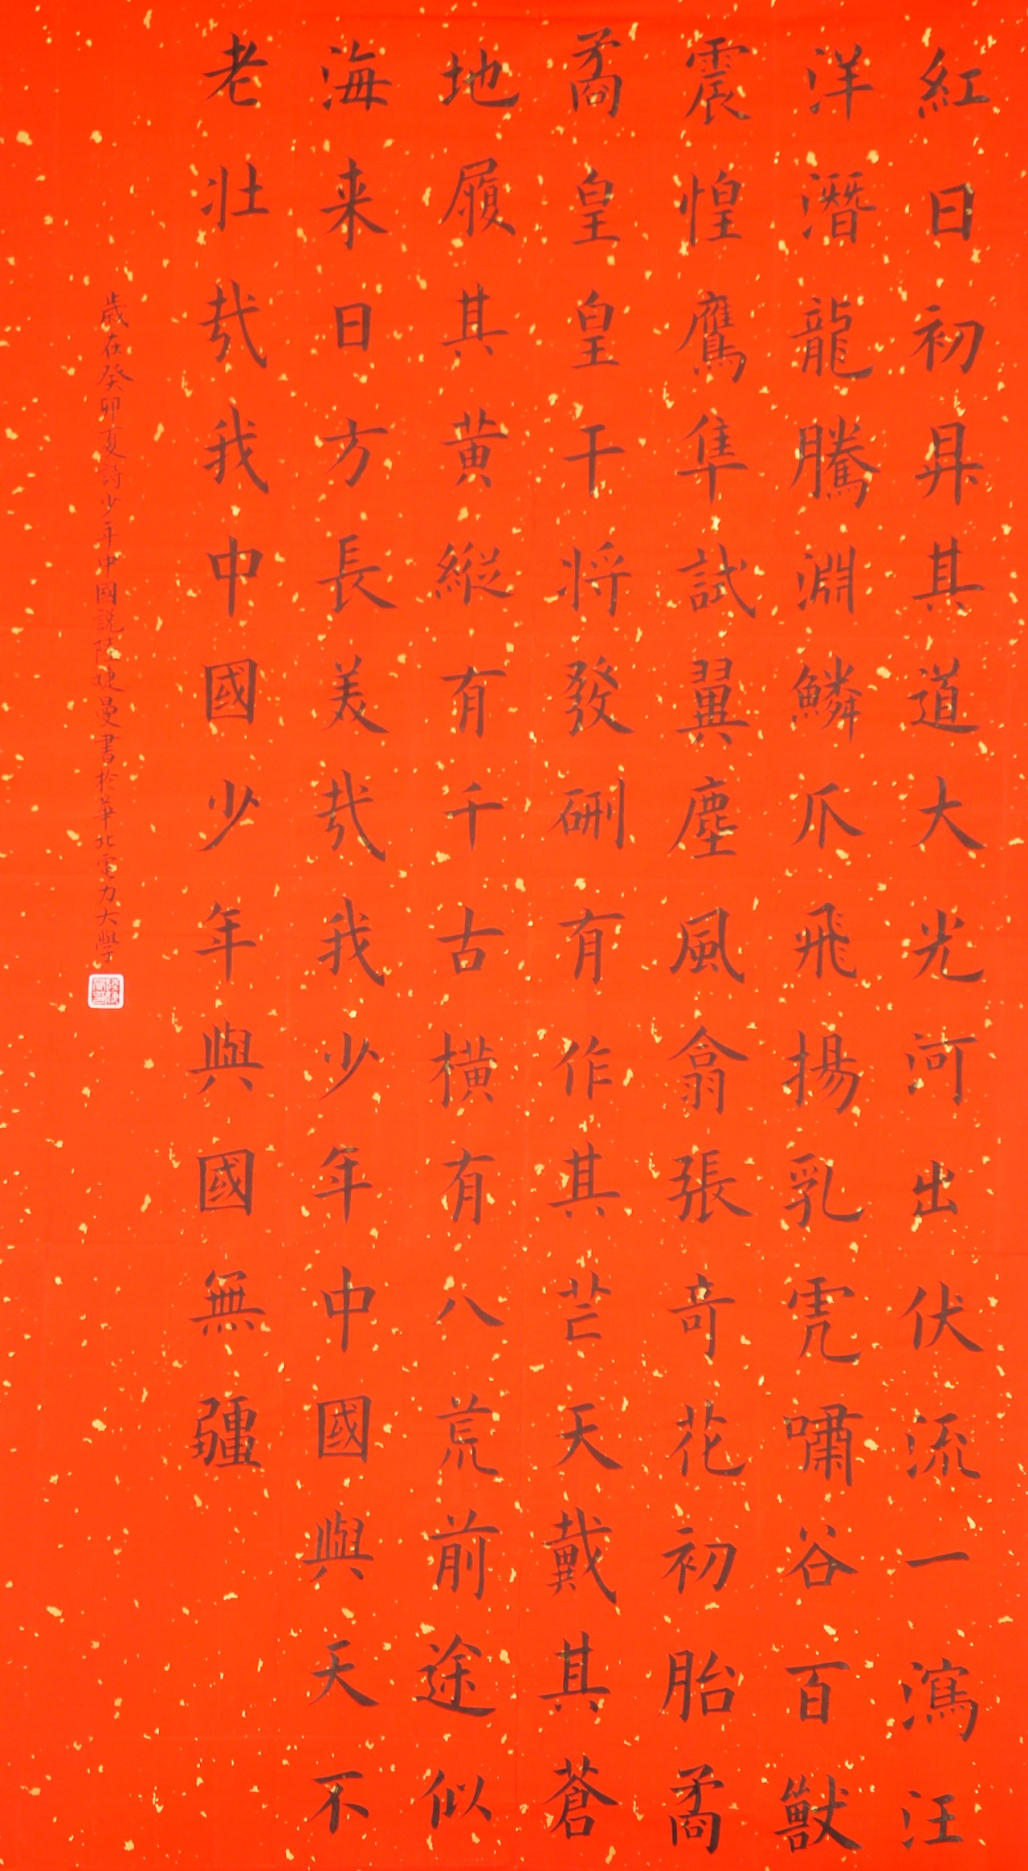 紅日初昇其道大光河出伏流一瀉汪
洋潛龍騰淵鱗爪飛揚乳虎嘯谷百獸
震惶鷹隼試翼風塵翕張奇花初胎矞
矞皇皇干將發硎有作其芒天戴其蒼
地履其黃縱有千古橫有八荒前途似
海来日方長美哉我少年中國與天不
老壯哉我中國少年與國無疆
歲在癸卯夏詩少年中國說陸婕曼書於華北電力大學